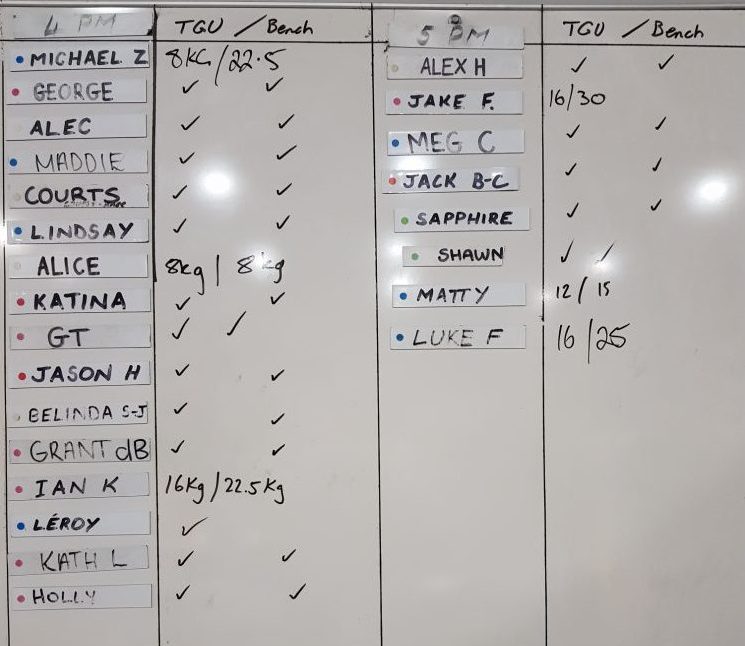 4 PM TGU / Bench
MICHAEL Z 8KG/22.5
GEORGE ✓ ✓
ALEC ✓ ✓
MADDIE ✓ ✓
COURTS ✓ ✓
LINDSAY ✓ ✓
ALICE 8kg | 8kg
KATINA ✓ ✓
GT ✓ ✓
JASON H ✓ ✓
BELINDA S-J ✓ ✓
GRANT dB ✓ ✓
IAN K 16Kg/22.5Kg
LÉROY ✓
KATH L ✓ ✓
HOLLY ✓ ✓
5 PM TGU / Bench
ALEX H ✓ ✓
JAKE F. 16/30
MEG C ✓ ✓
JACK B-C ✓ ✓
SAPPHIRE ✓ ✓
SHAWN ✓ ✓
MATTY 12/15
LUKE F 16/25